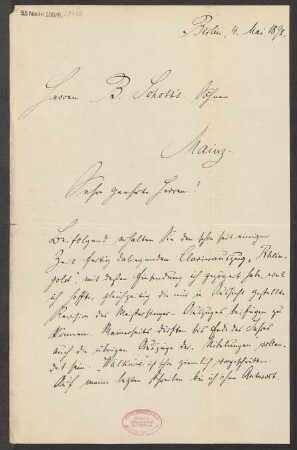 Berlin, 4. Mai 189
Herren B. Schott's Söhnen
Mainz.
Sehr geehrte Herren!
Beifolgend erhalten Sie den schon seit einiger
Zeit fertig daliegenden Clavierauszug „Rhein-
gold" mit dessen Einsendung ich gezögert habe, weil
ich hoffte, gleichzeitig die mir in Aussicht gestellte
Revision des Meistersinger-Auszuges beifügen zu
können. Meinerseits dürften bis Ende des Jahres
auch die übrigen Auszüge der Nibelungen vollen-
det sein. „Walküre" ist schon ziemlich vorgeschritten.
Auf mein letztes Schreiben bin ich ohne Antwort.